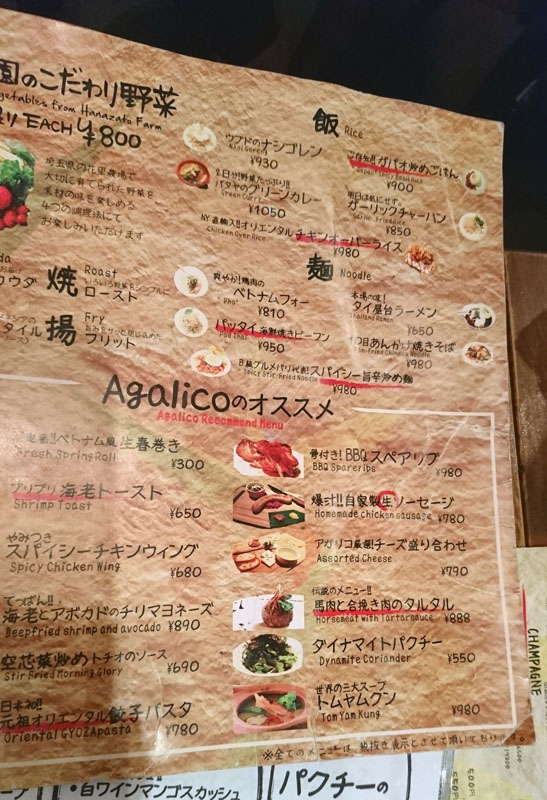 園のこだわり野菜
getables from Hanazato Farm
EACH ¥800
埼玉県の花里農場で
大切に育てられた野菜を
素材の味を楽しめる
4つの調理法にて
お楽しみいただけます
焼 Roast
ロースト
揚 Fry
フリット
飯 Rice
ウブドのナシゴレン
Nasi Goreng
¥930
1日分!野菜たっぷり!!
パタヤのグリーンカレー
Green Curry
¥1050
NY直輸入!!オリエンタルチキンオーバーライス
Chicken Over Rice
¥980
ガパオ炒めごはん
¥900
明日は気にせず。
ガーリックチャーハン
Garlic Fried Rice
¥850
麺 Noodle
爽やか!鶏肉の
ベトナムフォー
Pho
¥810
パッタイ 海鮮焼きビーフン
Pad Thai
¥950
B級グルメバリ代表!スパイシー旨辛炒め麺
Spicy Stir-fried Noodle
¥980
本場の味!
タイ屋台ラーメン
Thailand Ramen
¥650
あんかけ焼きそば
Chinese Noodle
¥980
Agalicoのオススメ
Agalico Recommend Menu
ベトナム風生春巻き
Fresh Spring Roll
¥300
プリプリ海老トースト
Shrimp Toast
¥650
やみつき
スパイシーチキンウィング
Spicy Chicken Wing
¥680
てっぱん!!
海老とアボカドのチリマヨネーズ
Deepfried shrimp and avocado ¥890
空芯菜炒めトチオのソース
Stir Fried Morning Glory
¥690
日本初!!
元祖オリエンタル餃子パスタ
Oriental GYOZApasta
¥780
骨付き! BBQ スペアリブ
BBQ Spareribs
¥980
爆汁!!自家製生ソーセージ
Homemade chicken sausage ¥780
アガリコ厳選!チーズ盛り合わせ
Assorted Cheese
¥790
伝説のメニュー!!
馬肉と合挽き肉のタルタル
Horsemeat with Tartarsauce ¥888
ダイナマイトパクチー
Dynamite Coriander
¥550
世界の三大スープ
トムヤムクン
Tom Yam Kung
¥980
※全てのメニューは、税抜き表示とさせて頂いており
CHAMPAGNE
白ワインマンゴスカッシュ
パクチーの
500円
550円